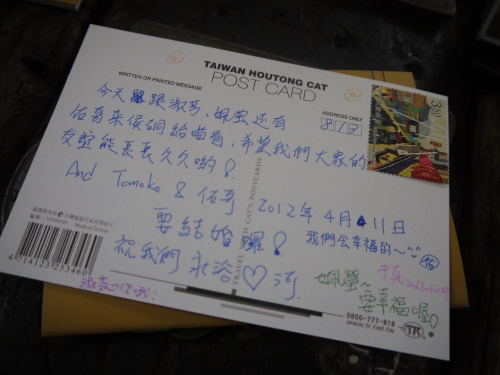 TAIWAN HOUTONG CAT
POST CARD
WRITTEN OR PRINTED MESSAGE
ADDRESS ONLY
350
今天跟淑芬、姵螢還有
佑哥來侯硐給喵看,希望我們大家的
友誼能長長久久喲!
And Tomoko & 佑哥 2012年4月11日
要結婚囉!
我們会幸福的~
祝我們永浴♡河
姵螢~
要幸福喔!
TRAVEL WITH CAT'S POSTCARDS
Made in Taiwan
4714125253460
0800-777-818
www.tr.net.tw
TR